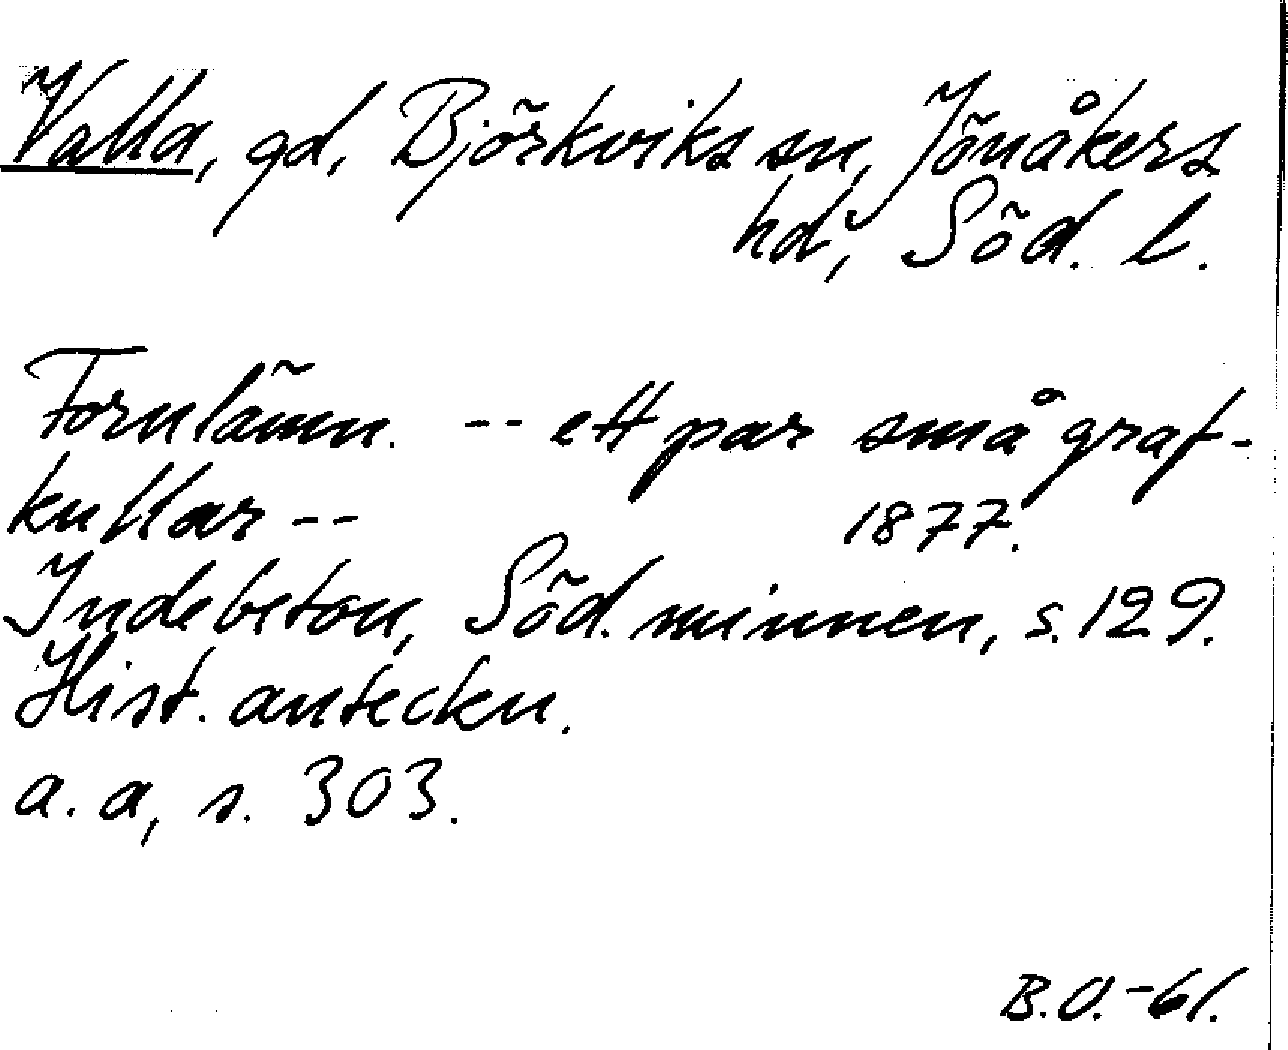 Valla, gd, Björkviks sn, Jönåkers
hd, Söd. l.
Fornlämn. -- ett par små graf-
kullar -- 1877.
Indebetou, Söd. minnen, s. 129.
Hist. anteckn.
a. a, s. 303.
B.O.-61.